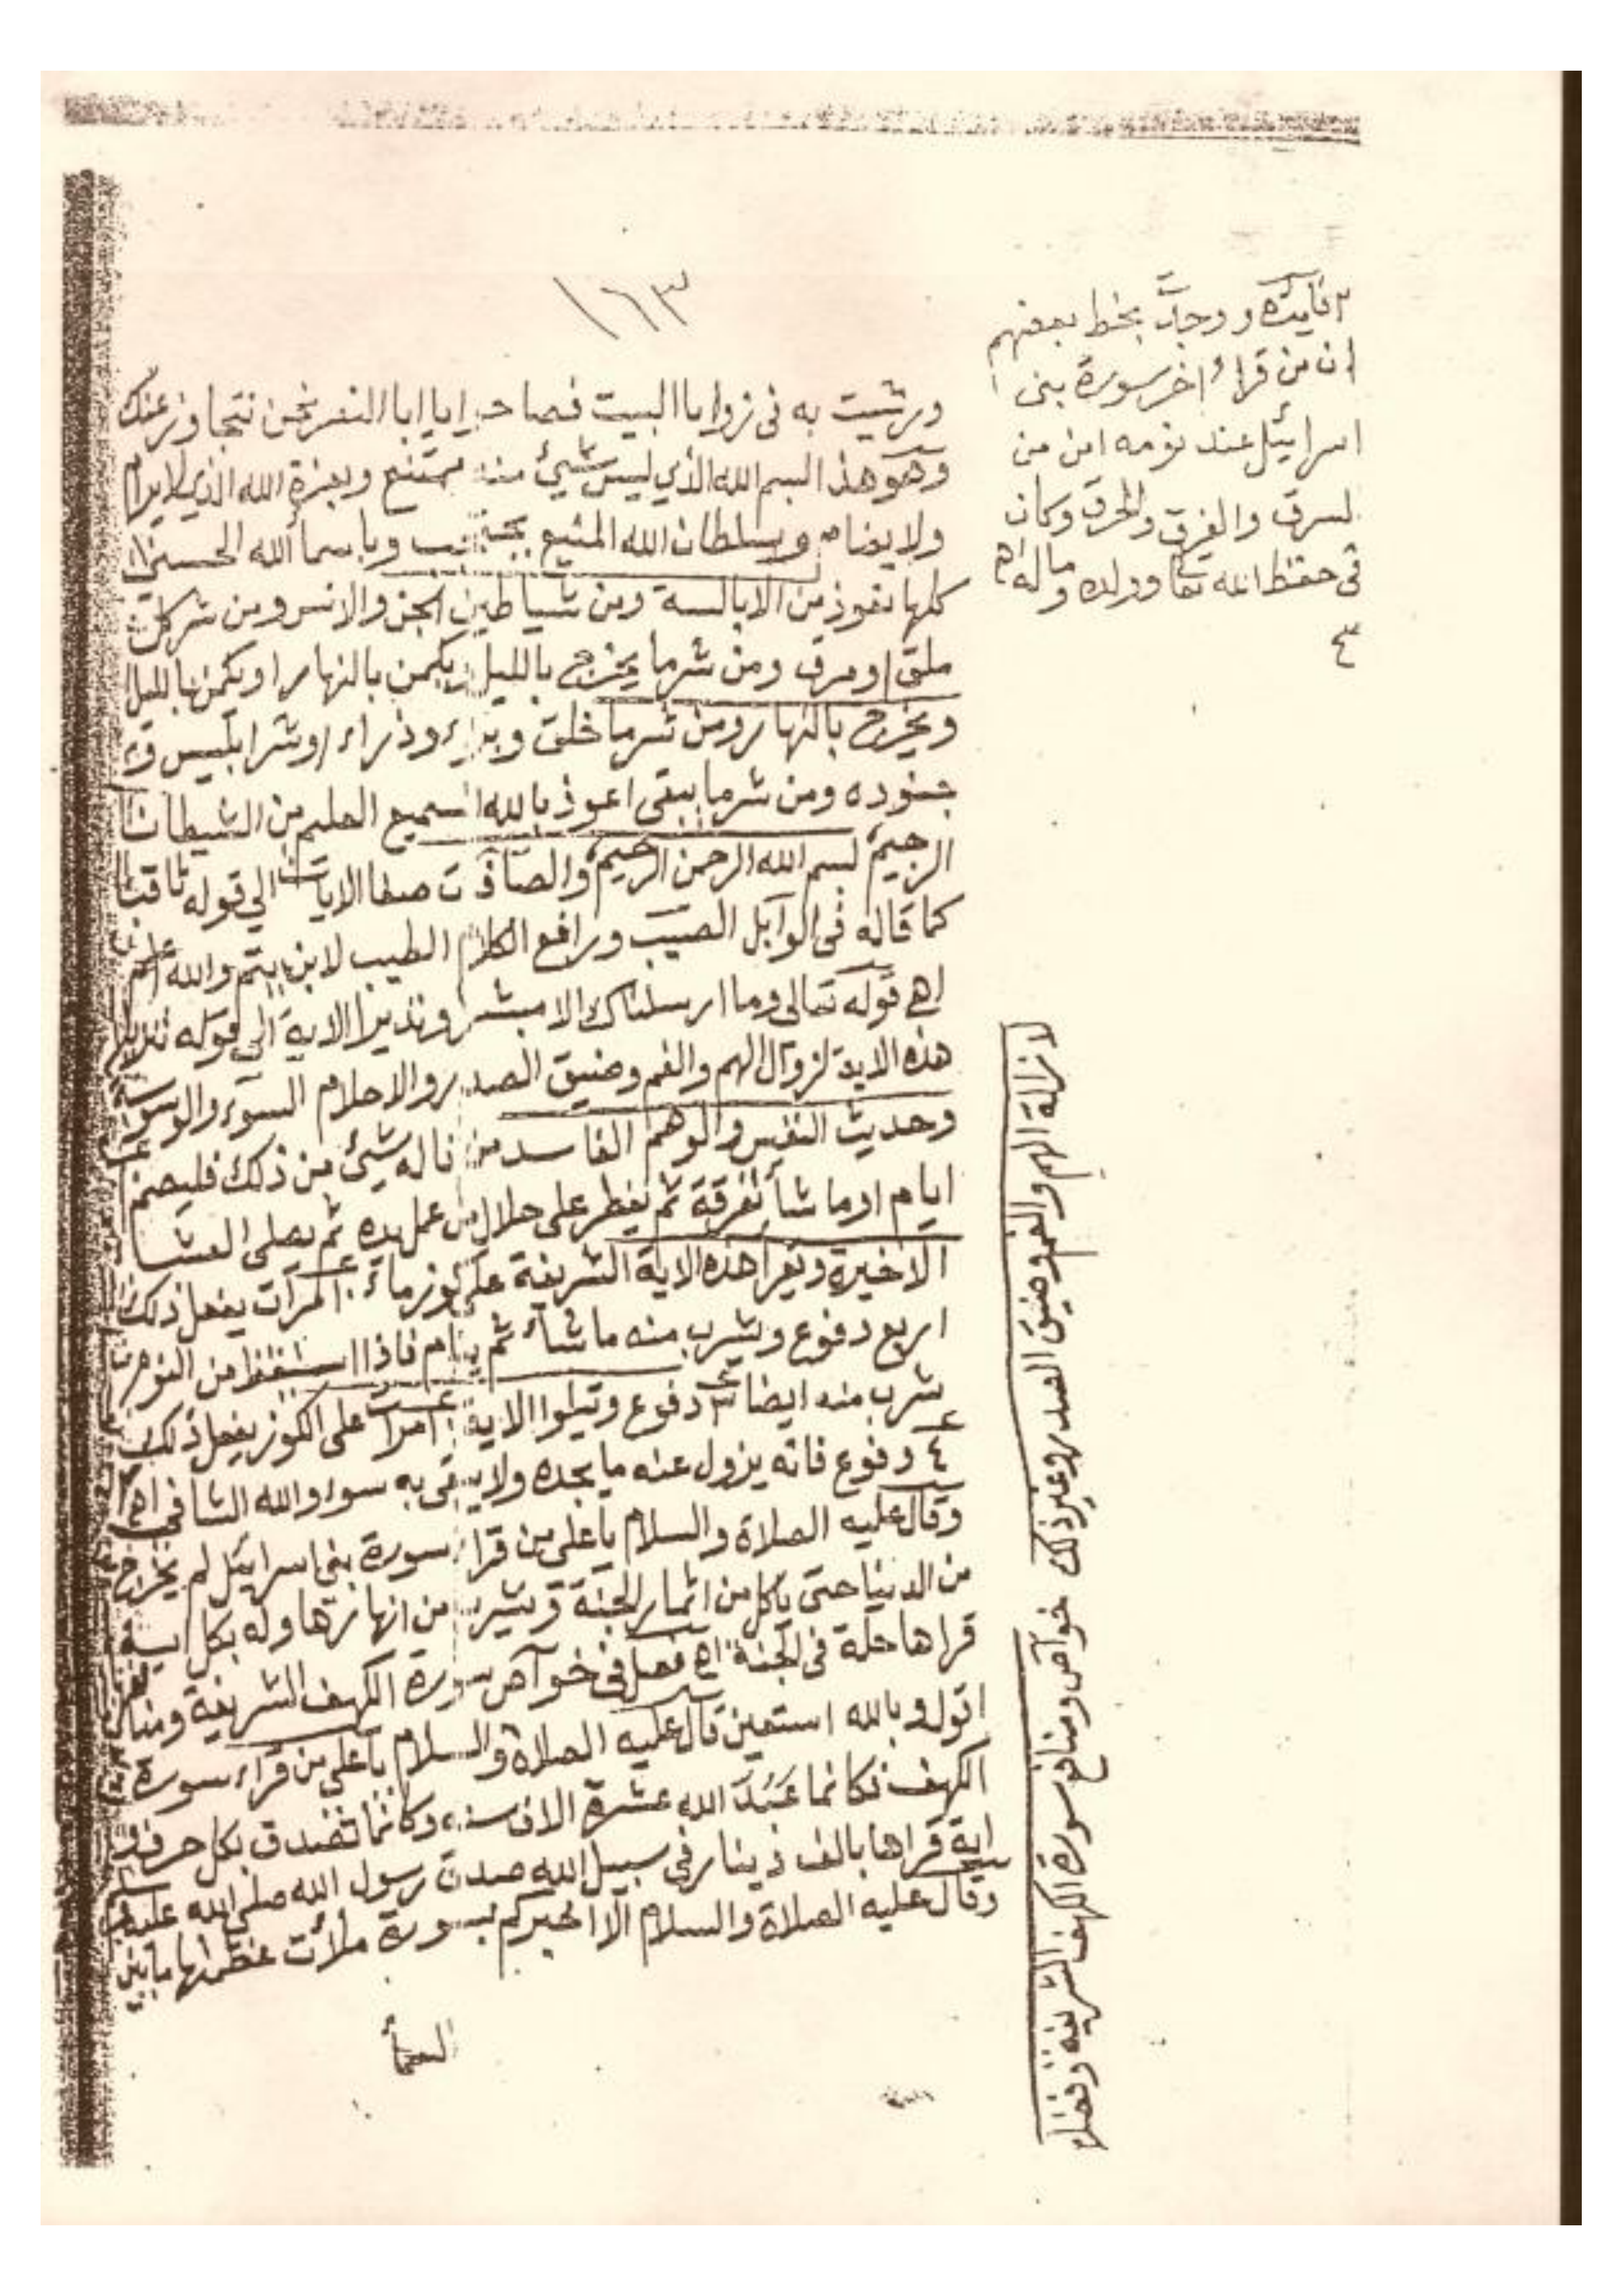 ١٦٣
ورشيت به في زوايا البيت فصاحوا يا ابا النصر نحن نتجاوز عنك
وهو هذا البسم الله الذي ليس شيئ منه ممتنع وبعزة الله الذي لا يرام
ولا يضام وبسلطان الله المنيع نحتجب وباسمأ الله الحسنى
كلها نعوذ من الابالسة ومن شياطين الجن والانس ومن شر كل
ومن شر ما يخرج بالليل ويكمن بالنهار او يكمن بالليل
ويخرج بالنهار ومن شر ما خلق وبرىء وذراء وشر ابليس و
جنوده ومن شر ما يبقى اعوذ بالله السميع العليم من الشيطان
الرجيم بسم الله الرحمن الرحيم والصآفآت صفا الايات الي قوله ثاقب
كما قاله في الوآبل الصيب ورافع الكلام الطيب لابن والله اعلم
اهـ قوله تعالى وما ارسلناك الا مبشرا ونذيرا الاية الي قوله
هذه الاية لزوال الهم والغم وضيق الصدر والاحلام السوء والوسوسة
وحديث النفس والوهم الفاسد من ناله شيئ من ذلك فليصم
ايام او ما شأ تفرقة ثم يفطر على حلال من عمل يده ثم يصلى العشا
الاخيرة ويقرا هذه الاية الشريفة على كوز ماء مرات يفعل ذلك
اربع دفوع ويشرب منه ما شاء ثم ينام فاذا استيقظ من النوم
شرب منه ايضا ٣ دفوع ويتلوا الاية مرات على الكوز يفعل ذلك
٤ دفوع فانه يزول عنه ما يجده ولا يبقى به سوء والله الشافي اهـ
وقال عليه الصلاة والسلام يا على من قراء سورة بني اسرائيل لم يخرج
من الدنيا حتى ياكل من اثمار الجنة ويشرب من انهارها وله بكل اية
قراها حلة في الجنة اهـ فصل في خوآص سورة الكهف الشريفة ومنا
اقول وبالله استعين قال عليه الصلاة والسلام يا على من قراء سورة
الكهف فكانما عَبَدَ الله عشرة الاف سنه وكانما تصدق بكل حرف و
اية قراها بالف دينار في سبيل الله صدق رسول الله صلى الله عليه
وقال عليه الصلاة والسلام الا اخبركم بسورة ملأت عظمتها ما بين
السمأ
فآيدة ووجد بخط بعضهم
ان من قرا اخر سورة بني
اسرائيل عند نومه امن من
لسرق والغرق والحرق وكان
في حفظ الله تعا وولده وماله اهـ
لازالة الهم والغم وضيق الصدر وغير ذلك
خوآص ومنافع سورة الكهف الشريفة وفضلها